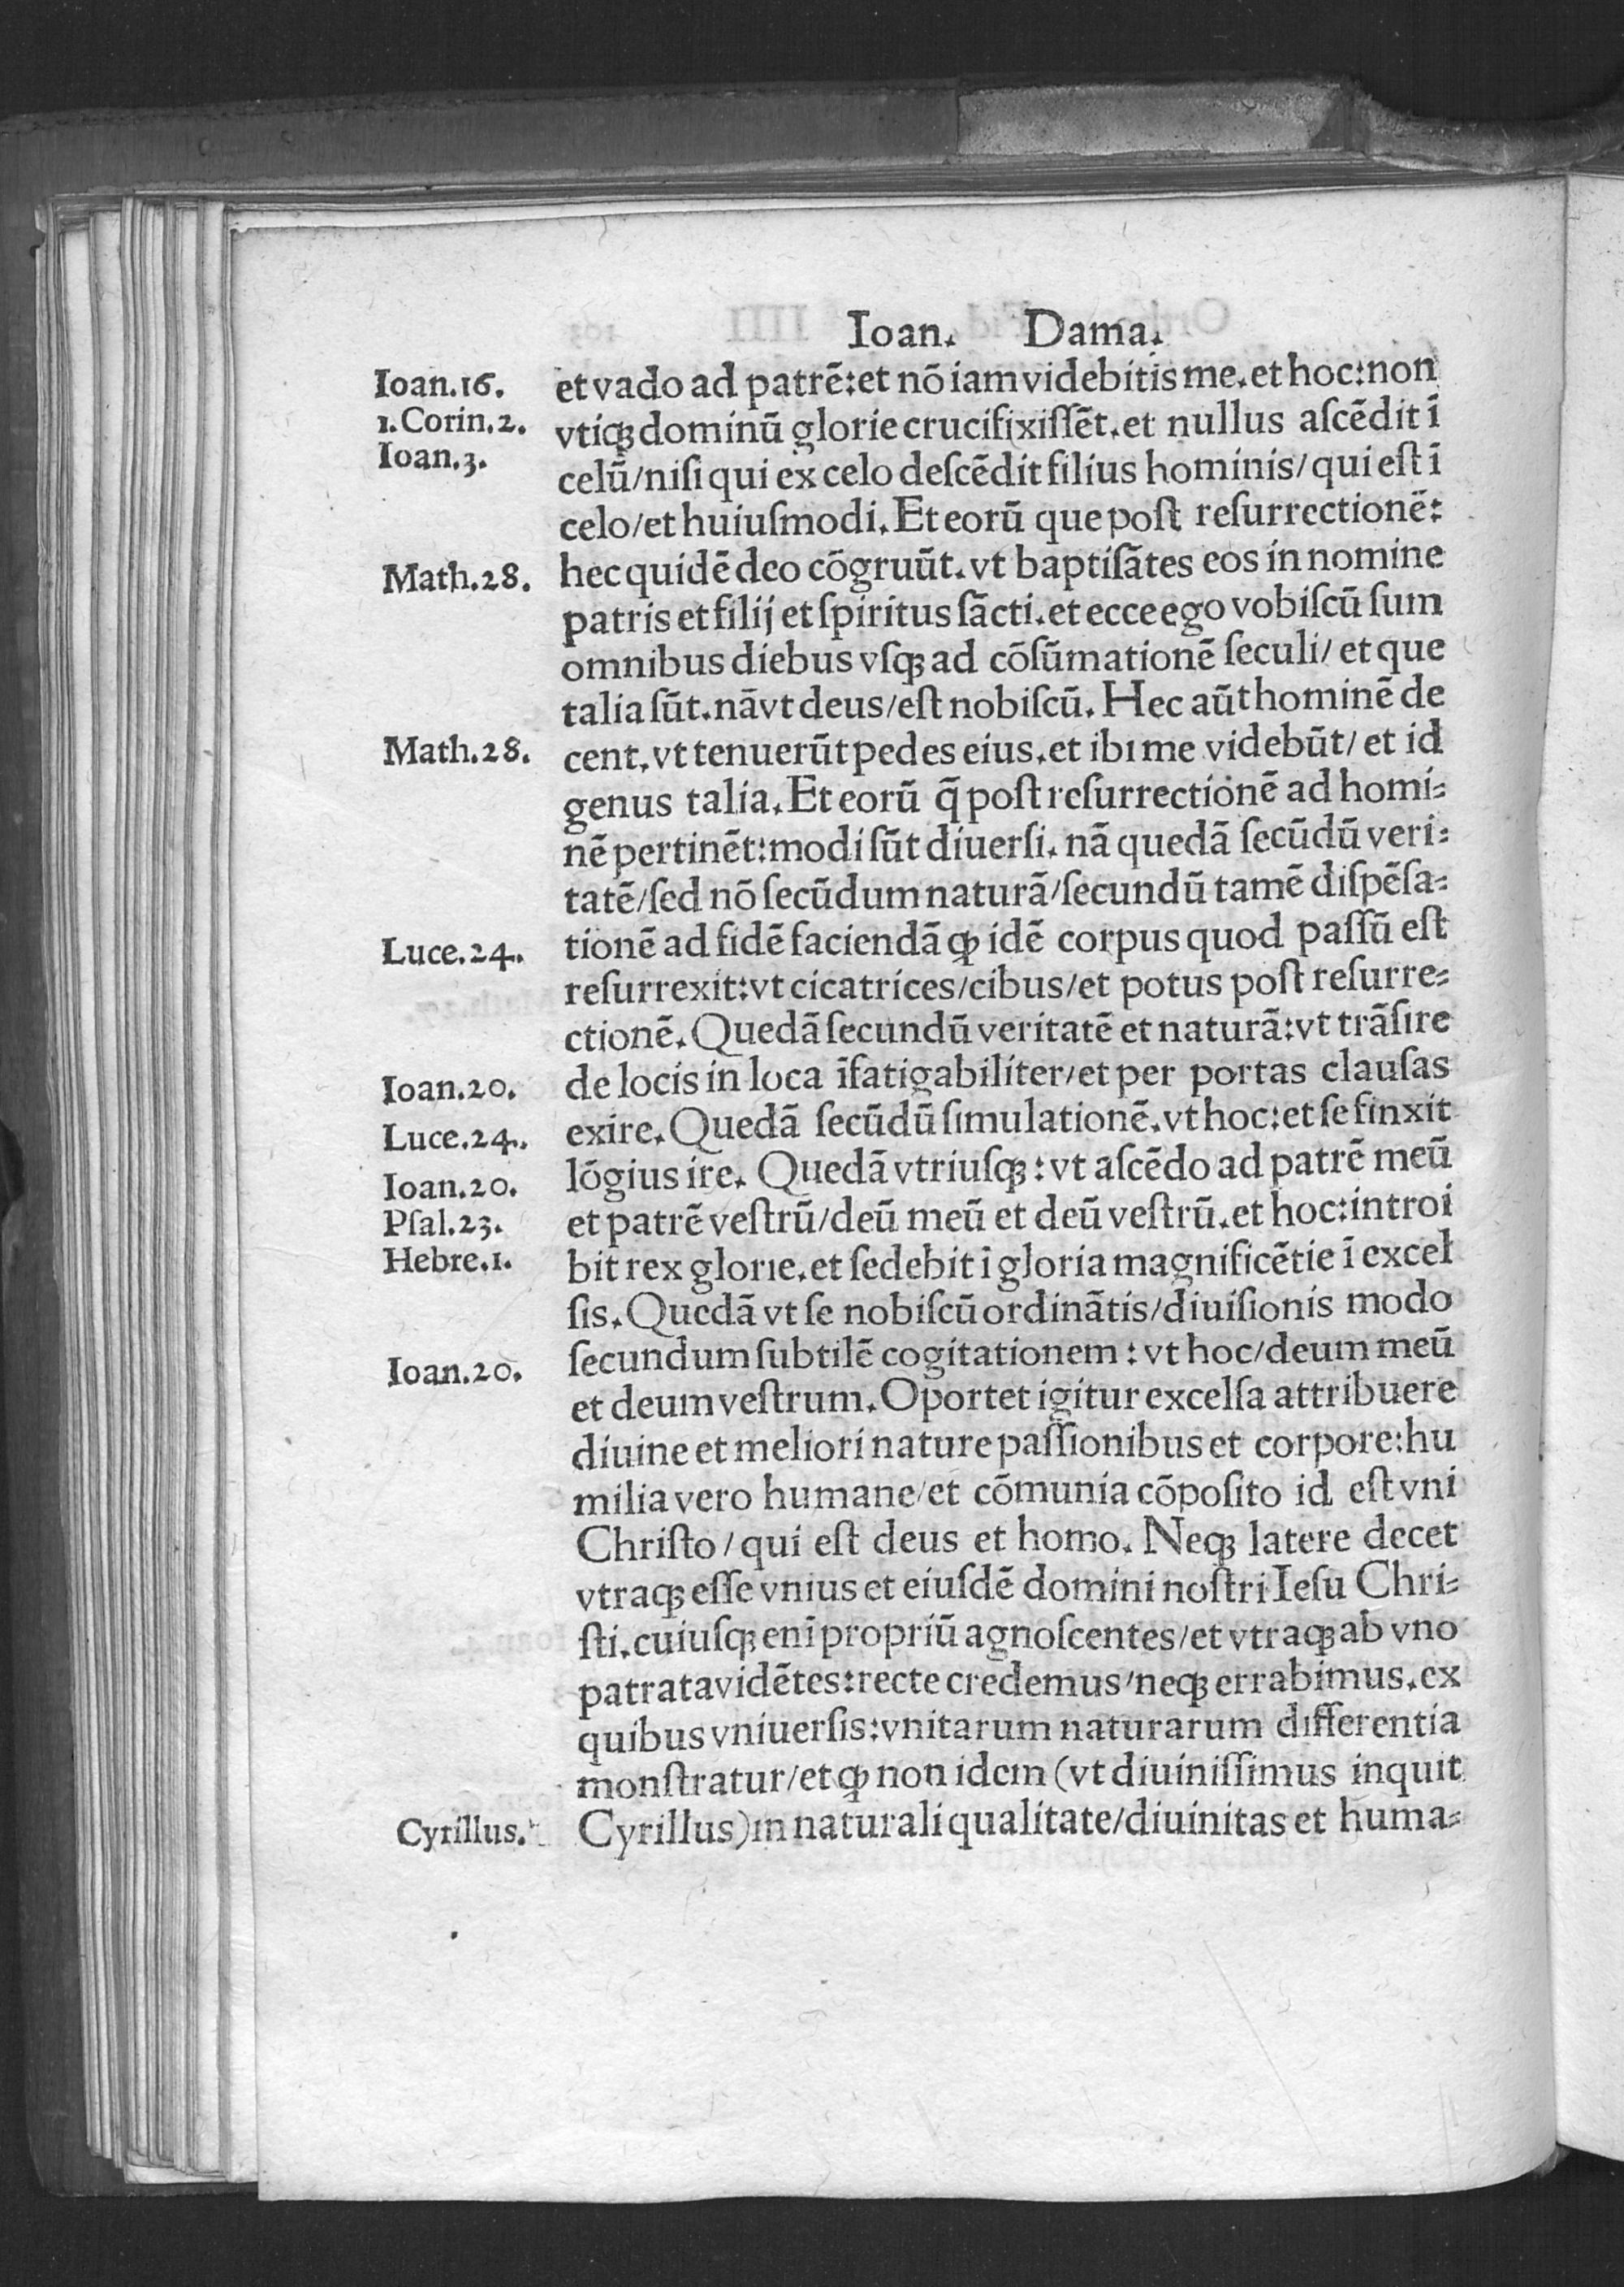 Ioan. Dama.
Ioan.16. et vado ad patrē:et nō iam videbitis me. et hoc:non
1.Corin.2. vtiqꝫ dominū glorie crucifixiſſēt. et nullus aſcēdit ī
Ioan.3. celū/niſi qui ex celo deſcēdit filius hominis/qui eſt ī
celo/et huiuſmodi. Et eorū que poſt reſurrectionē:
Math.28. hec quidē deo cōgruūt. vt baptiſātes eos in nomine
patris et filij et ſpiritus ſācti. et ecce ego vobiſcū ſum
omnibus diebus vſqꝫ ad cōſūmationē ſeculi/ et que
talia ſūt. nā vt deus/eſt nobiſcū. Hec aūt hominē de
Math.28. cent. vt tenuerūt pedes eius. et ibi me videbūt/ et id
genus talia. Et eorū q̄ poſt reſurrectionē ad homi⸗
nē pertinēt:modi ſūt diuerſi. nā quedā ſecūdū veri⸗
tatē/ſed nō ſecūdum naturā/ſecundū tamē diſpēſa⸗
Luce.24. tionē ad fidē faciendā ꝙ idē corpus quod paſſū eſt
reſurrexit:vt cicatrices/cibus/et potus poſt reſurre⸗
ctionē. Quedā ſecundū veritatē et naturā:vt trāſire
Ioan.20. de locis in loca īfatigabiliter/et per portas clauſas
Luce.24. exire. Quedā ſecūdū ſimulationē. vt hoc:et ſe finxit
Ioan.20. lōgius ire. Quedā vtriuſqꝫ: vt aſcēdo ad patrē meū
Pſal.23. et patrē veſtrū/deū meū et deū veſtrū. et hoc:introi
Hebre.1. bit rex glorie. et ſedebit ī gloria magnificētie ī excel
ſis. Quedā vt ſe nobiſcū ordinātis/diuiſionis modo
Ioan.20. ſecundum ſubtilē cogitationem : vt hoc/deum meū
et deum veſtrum. Oportet igitur excelſa attribuere
diuine et meliori nature paſſionibus et corpore:hu
milia vero humane/et cōmunia cōpoſito id eſt vni
Chriſto/ qui eſt deus et homo. Neqꝫ latere decet
vtraqꝫ eſſe vnius et eiuſdē domini noſtri Ieſu Chri⸗
ſti. cuiuſqꝫ enī propriū agnoſcentes/et vtraqꝫ ab vno
patrata vidētes:recte credemus/neqꝫ errabimus. ex
quibus vniuerſis:vnitarum naturarum differentia
monſtratur/et ꝙ non idem (vt diuiniſſimus inquit
Cyrillus. Cyrillus)in naturali qualitate/diuinitas et huma⸗